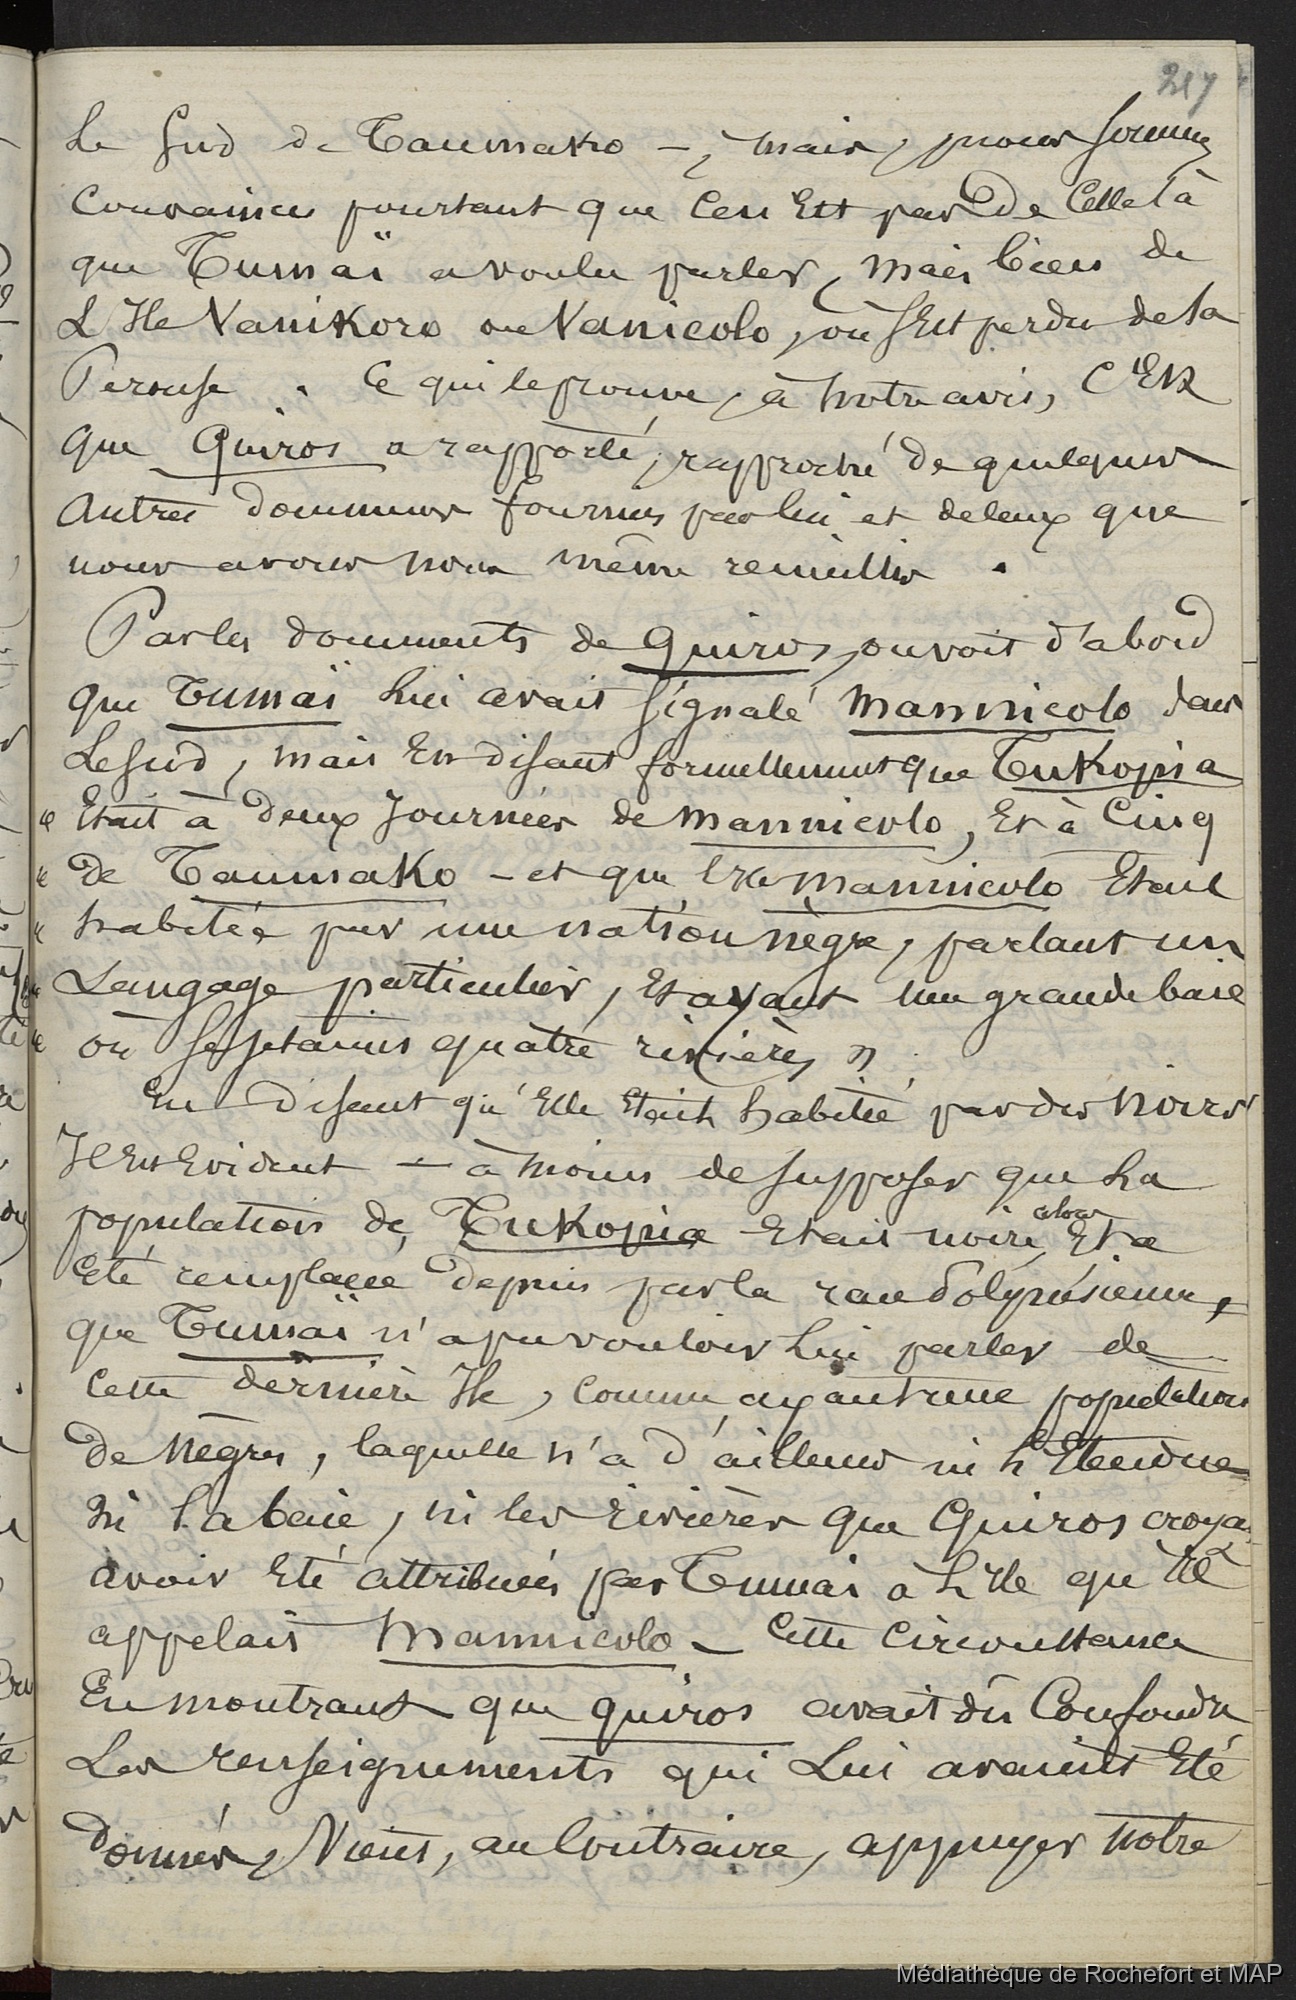 217
le sud de Taumako -, mais, nous sommes
convaincu pourtant que ce n'est pas de celle là
que Tumaï a voulu parler, mais bien de
L'Ile Vanikoro ou Vanicolo, où s'est perdu de la
Perouse. Ce qui le prouve, à notre avis, C'Est
que Quiros a rapporté, rapproché de quelques
autres documens fournis par lui et de ceux que
nous avons nous même recueillis.
Par les documents de Quiros, on voit d'abord
que Tumaï lui avait signalé Mannicolo dans
Le sud, mais En disant formellement que Tukopia
« Etait à deux Journées de Mannicolo, Et à Cinq
« de Taumako - et que l'Ile Mannicolo Etait
« habitée par une nation nègre, parlant un
« Langage particulier, Et ayant une grande baie
« où se jetaient quatre rivières ».
En disant qu'Elle Etait habitée par des Noirs
Il Est Evident - à moins de supposer que La
population de Tukopia Etait noire alors, Et a
Eté remplacée depuis par la race Polynésienne,
que Tumaï n'a pu vouloir Lui parler de
cette dernière Ile, comme ayant une population
de Nègres, laquelle n'a d'ailleurs ni L'Etendue
ni la baie, ni les rivières que Quiros croya
avoir Eté attribuées par Tumai à L'Ile qu'Il
appelait Mannicolo - Cette Circonstance
En montrant que Quiros avait dû Confondre
Les renseignements qui Lui avaient Eté
donnés, Vient, au Contraire, appuyer notre
Médiathèque de Rochefort et MAP